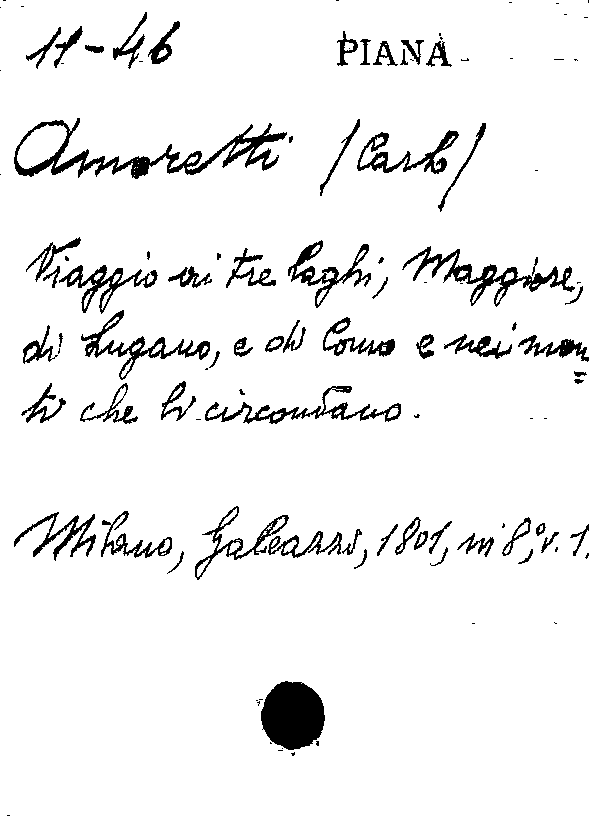 11-46 PIANA
Amoretti (Carlo)
Viaggio ai tre laghi, Maggiore,
di Lugano, e di Como e nei mon=
ti che li circondano.
Milano, Galeazzi, 1801, in 8°, v. 1.